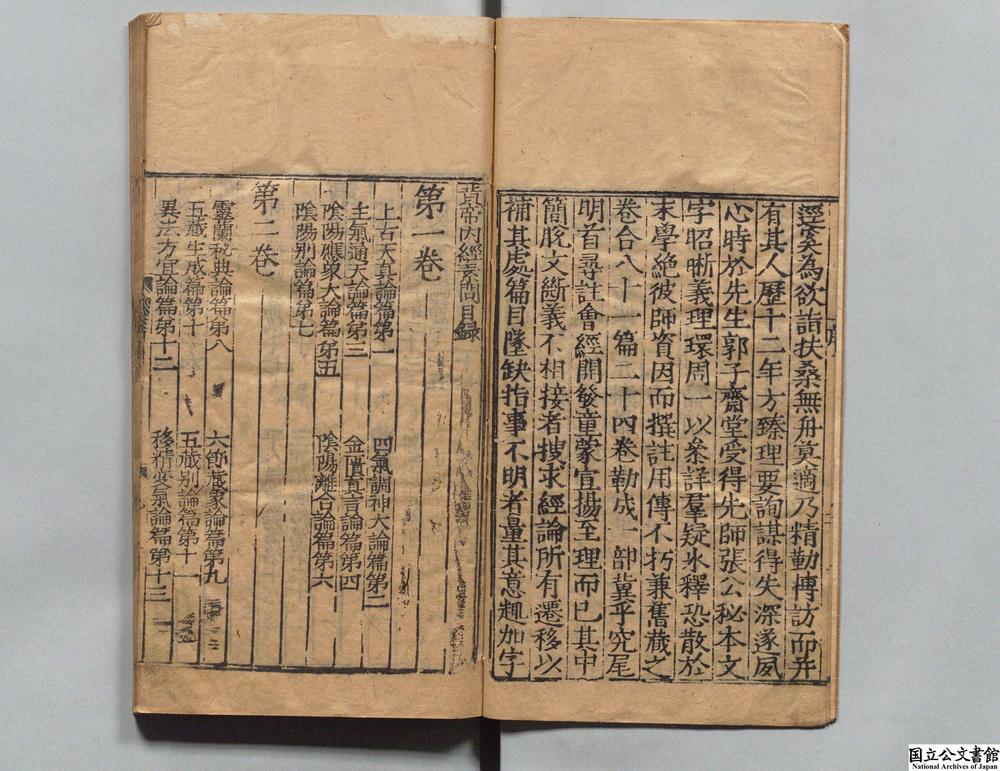 逕奚為欲詣扶桑無舟莫適乃精勤博訪而并
有其人歷十二年方臻理要詢謀得失深遂夙
心時於先生郭子齋堂受得先師張公秘本文
字昭晰義理環周一以叅詳羣疑氷釋恐散於
末學絶彼師資因而撰註用傳不朽兼舊藏之
卷合八十一篇二十四卷勒成一部冀乎究尾
明首尋註會經開發童蒙宣揚至理而已其中
簡脫文斷義不相接者搜求經論所有遷移以
補其處篇目墜缺指事不明者量其意趣加字
序
黃帝内經素問目録
第一卷
上古天真論篇第一 四氣調神大論篇第二
生氣通天論篇第三 金匱真言論篇第四
陰陽應象大論篇第五 陰陽離合論篇第六
陰陽別論篇第七
第二卷
靈蘭秘典論篇第八 六節藏象論篇第九
五藏生成篇第十 五藏別論篇第十一
異法方宜論篇第十二 移精變氣論篇第十三
国立公文書館
National Archives of Japan